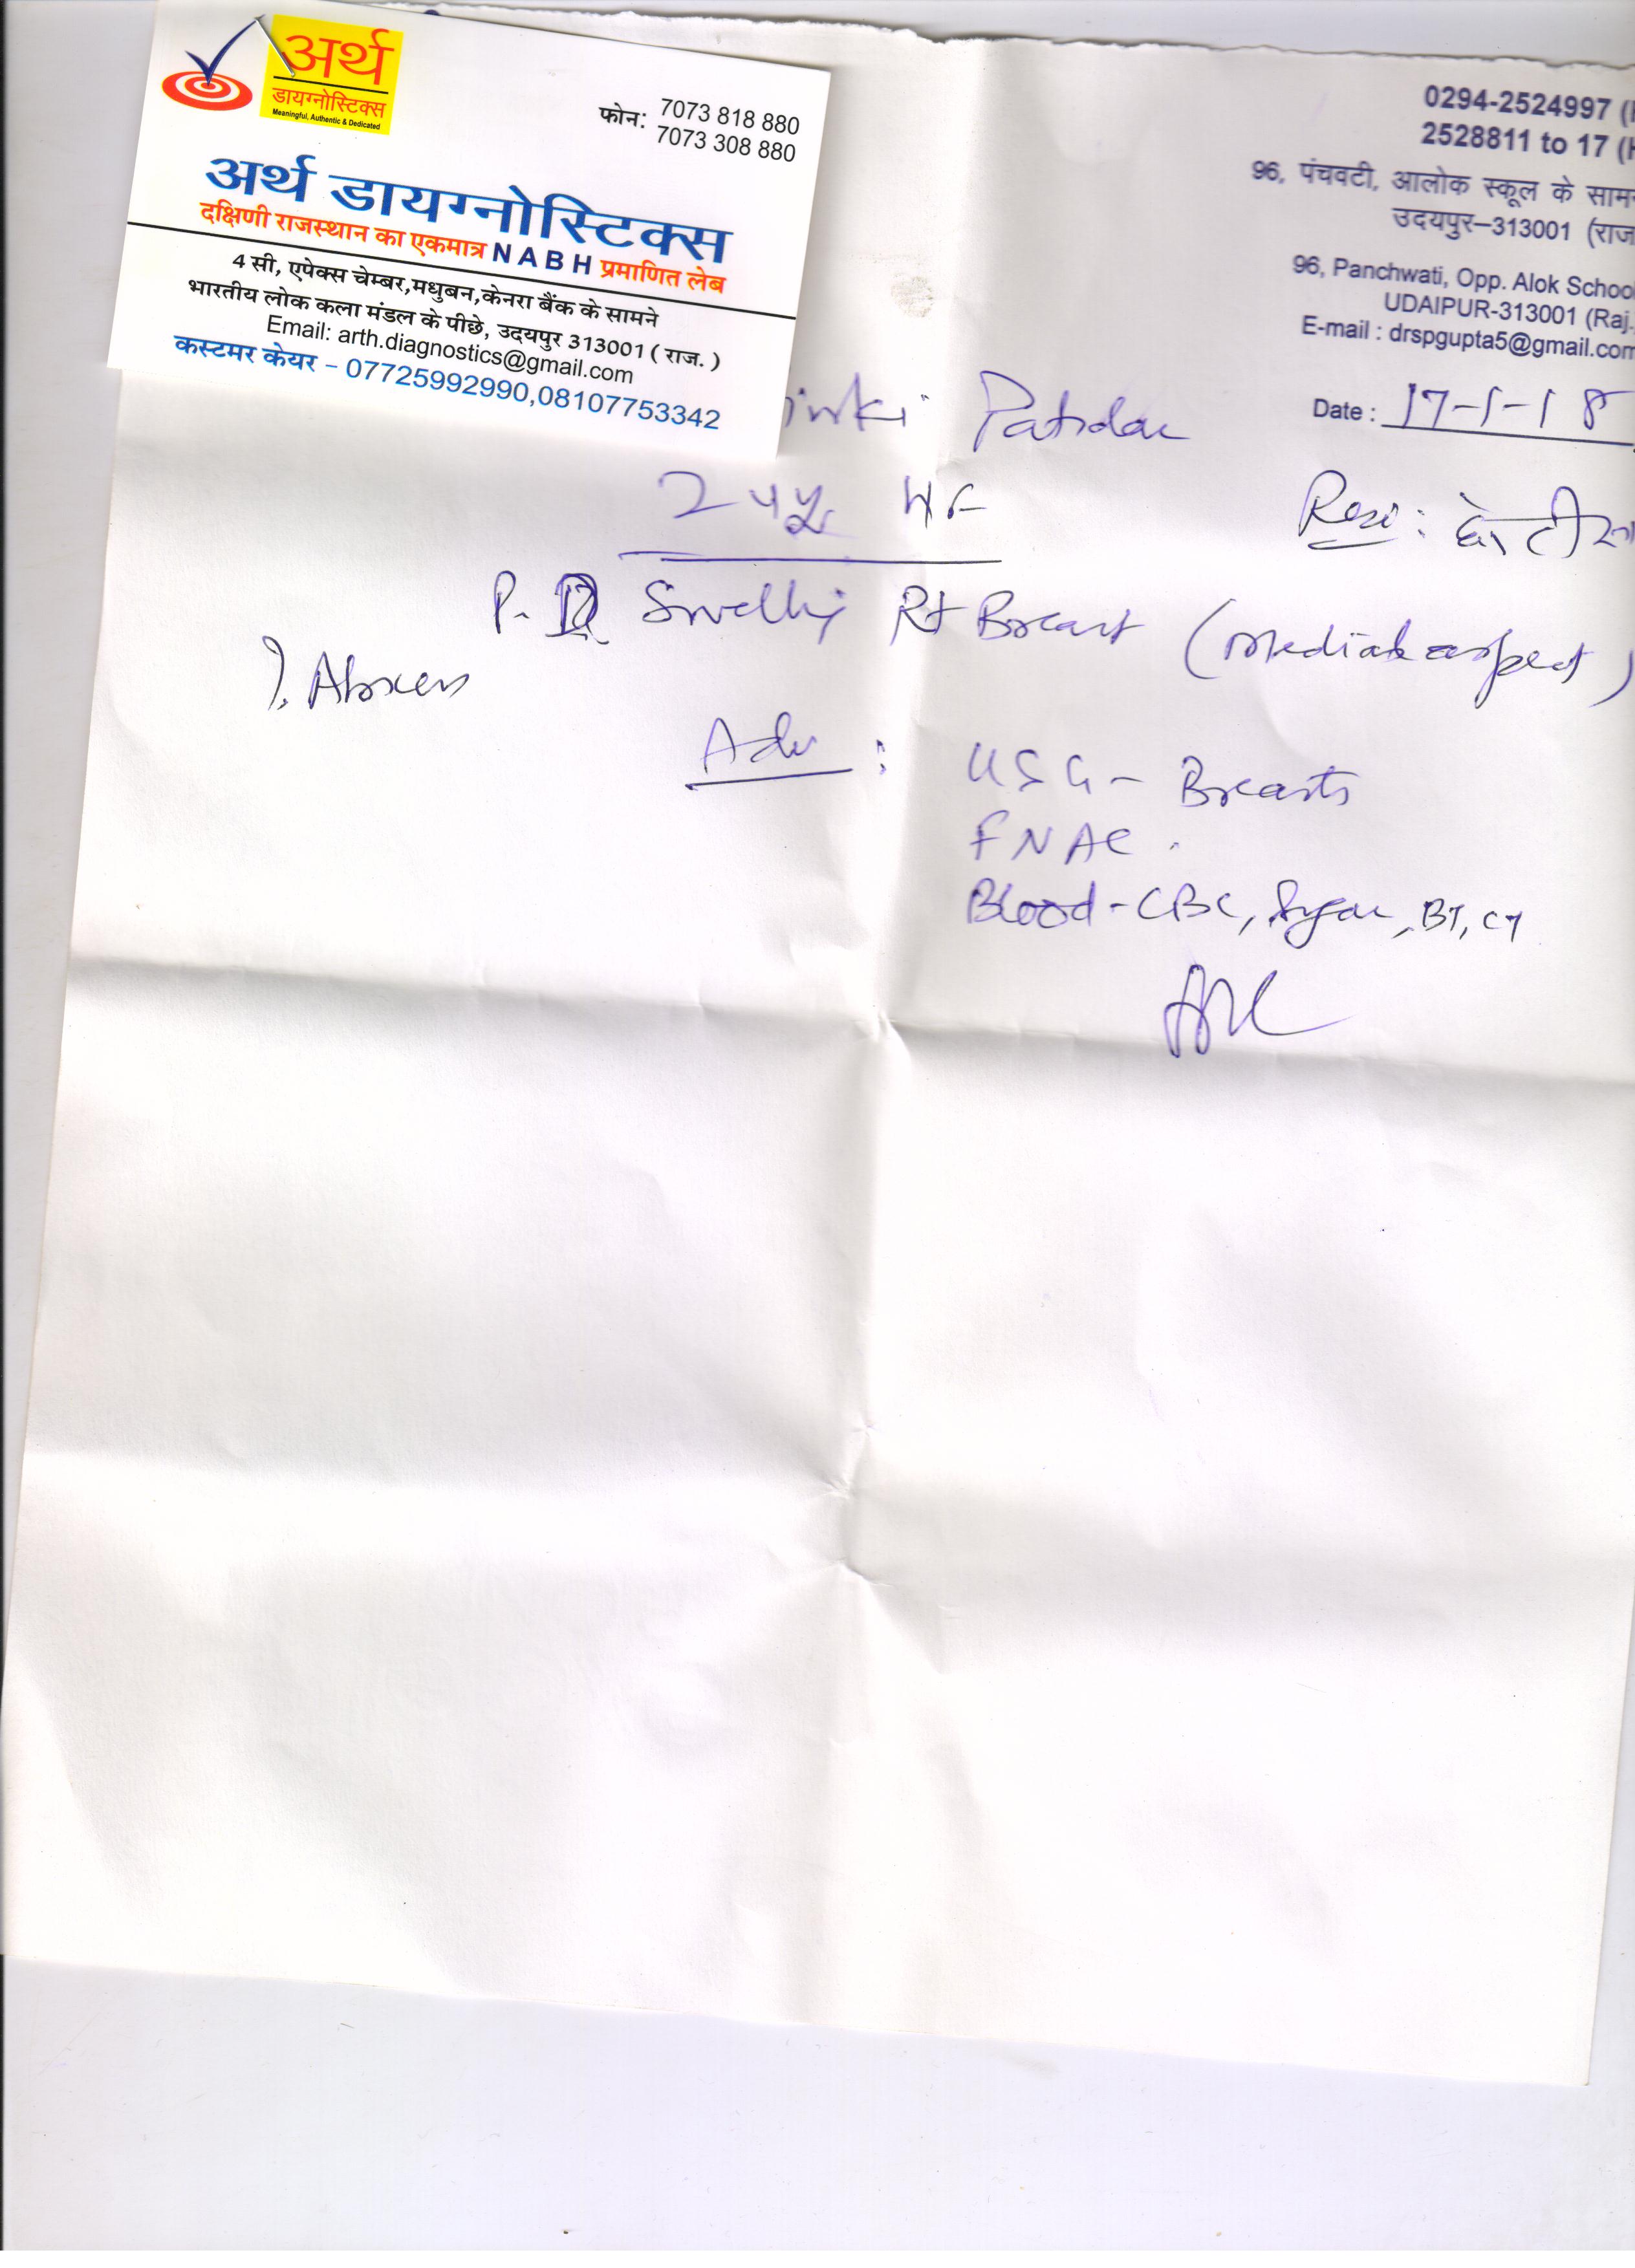 अर्थ
डायग्नोस्टिक्स
Meaningful, Authentic & Dedicated
फोन: 7073 818 880
7073 308 880
अर्थ डायग्नोस्टिक्स
दक्षिणी राजस्थान का एकमात्र NABH प्रमाणित लेब
4 सी, एपेक्स चेम्बर,मधुबन,केनरा बैंक के सामने
भारतीय लोक कला मंडल के पीछे, उदयपुर 313001 ( राज. )
Email: arth.diagnostics@gmail.com
कस्टमर केयर - 07725992990,08107753342
0294-2524997 (
2528811 to 17 (
96, पंचवटी, आलोक स्कूल के साम
उदयपुर-313001 (राज
96, Panchwati, Opp. Alok School
UDAIPUR-313001 (Raj.
E-mail : drspgupta5@gmail.com
Date : 17-1-18
inki Patidar
24yr
Resi :
P. Swelling Rt Breast (medial aspect)
?. Abscess
Adv :
USG - Breasts
FNAC .
Blood - CBC, Sugar, BT, CT